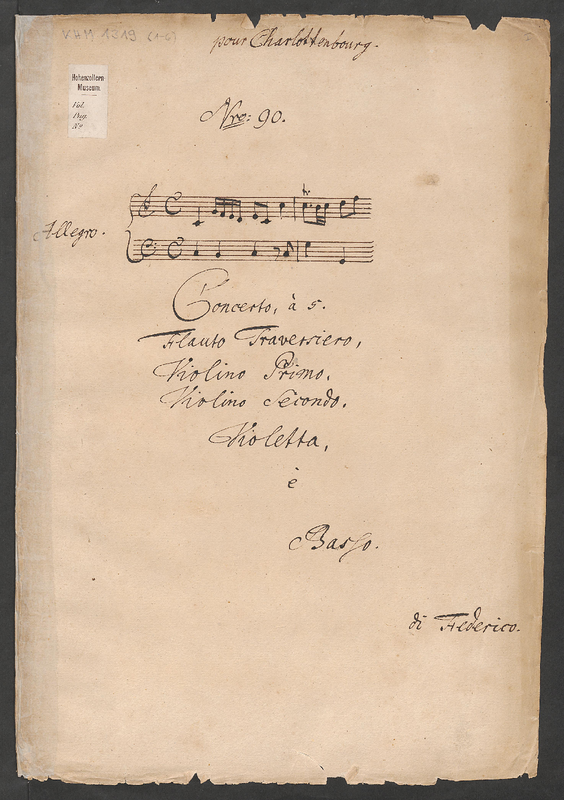 VHM 1319 (1-6)
pour Charlottenbourg.
Hohenzollern
Museum
Nro: 90.
Allegro.
Concerto, à 5.
Flauto Traversiero,
Violino Primo.
Violino Secondo.
Violetta,
è
Basso.
di Federico.